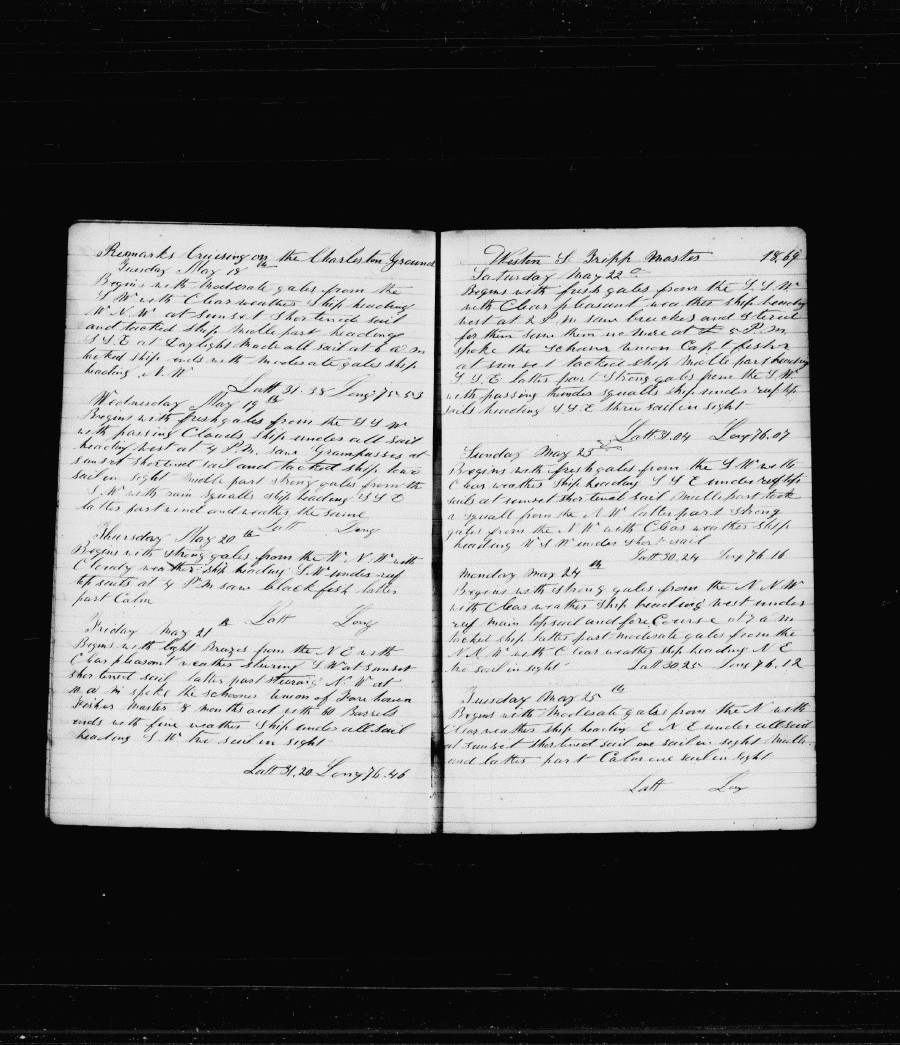 Remarks Cruising on the Charleston Ground
Tuesday May 18th
Begins with moderate gales from the
S W with Clear weather Ship heading
W N W at sunset Shortened sail
and tacked ship midle part heading
S S E at Daylight made all sail at 6 a m
tacked ship ends with moderate gales ship
heading N W
Latt 31-38 Long 75-53
Wednesday May 19th
Begins with fresh gales from the S S W
with passing Clouds ship under all sail
heading west at 4 P.M. saw Grampusses at
sunset shortened sail and tacked ship two
sail in sight midle part strong gales from the
S W with rain squalls ship heading S S E
latter part wind and weather the same
Latt Long
Thursday May 20th
Begins with strong gales from the W N W with
Cloudy weather ship heading S W under reef
top sails at 4 P.M saw blackfish latter
part Calm
Latt Long
Friday May 21th
Begins with light brazes from the N E with
Clear pleasant weather stearing S W at sunset
shortened sail latter part stearing N W at
10 a m spoke the schooner Union of Fare haven
Fisher master 8 months out with 60 Barrels
ends with fine weather Ship under all sail
heading S W two sail in sight
Latt 31.20 Long 76.46
Weston S Tripp Master 1869
Saturday May 22d
Begins with fresh gales from the S S W
with Clear pleasant weather ship heading
west at 2 P.M saw breches and steered
for them saw them no more at 5 P.M.
spoke the Schoner Union Capt fisher
at sunset tacked ship midle part heading
S S E latter part strong gales from the S W
with passing thunder squalls ship under reef top
sails heading S S E three sail in sight
Latt 31.04 Long 76.07
Sunday May 23
Begins with fresh gales from the S W with
Clear weather ship heading S S E under reef top
sails at sunset shortened sail midle part took
a squall from the N W latter part strong
gales from the N W with Clear weather ship
heading W S W under short sail
Latt 30.24 Long 76.16
Monday May 24th
Begins with strong gales from the N N W
with Clear weather Ship heading west under
reef main topsail and fore Course at 7 a m
tacked ship latter part moderate gales from the
N N W with Clear weather ship heading N E
no sail in sight Latt 30.25 Long 76.12
Tuesday May 25th
Begins with moderate gales from the N with
Clear weather ship heading E N E under all sail
at sunset shortened sail one sail in sight midle
and latter part Calm one sail in sight
Latt Long